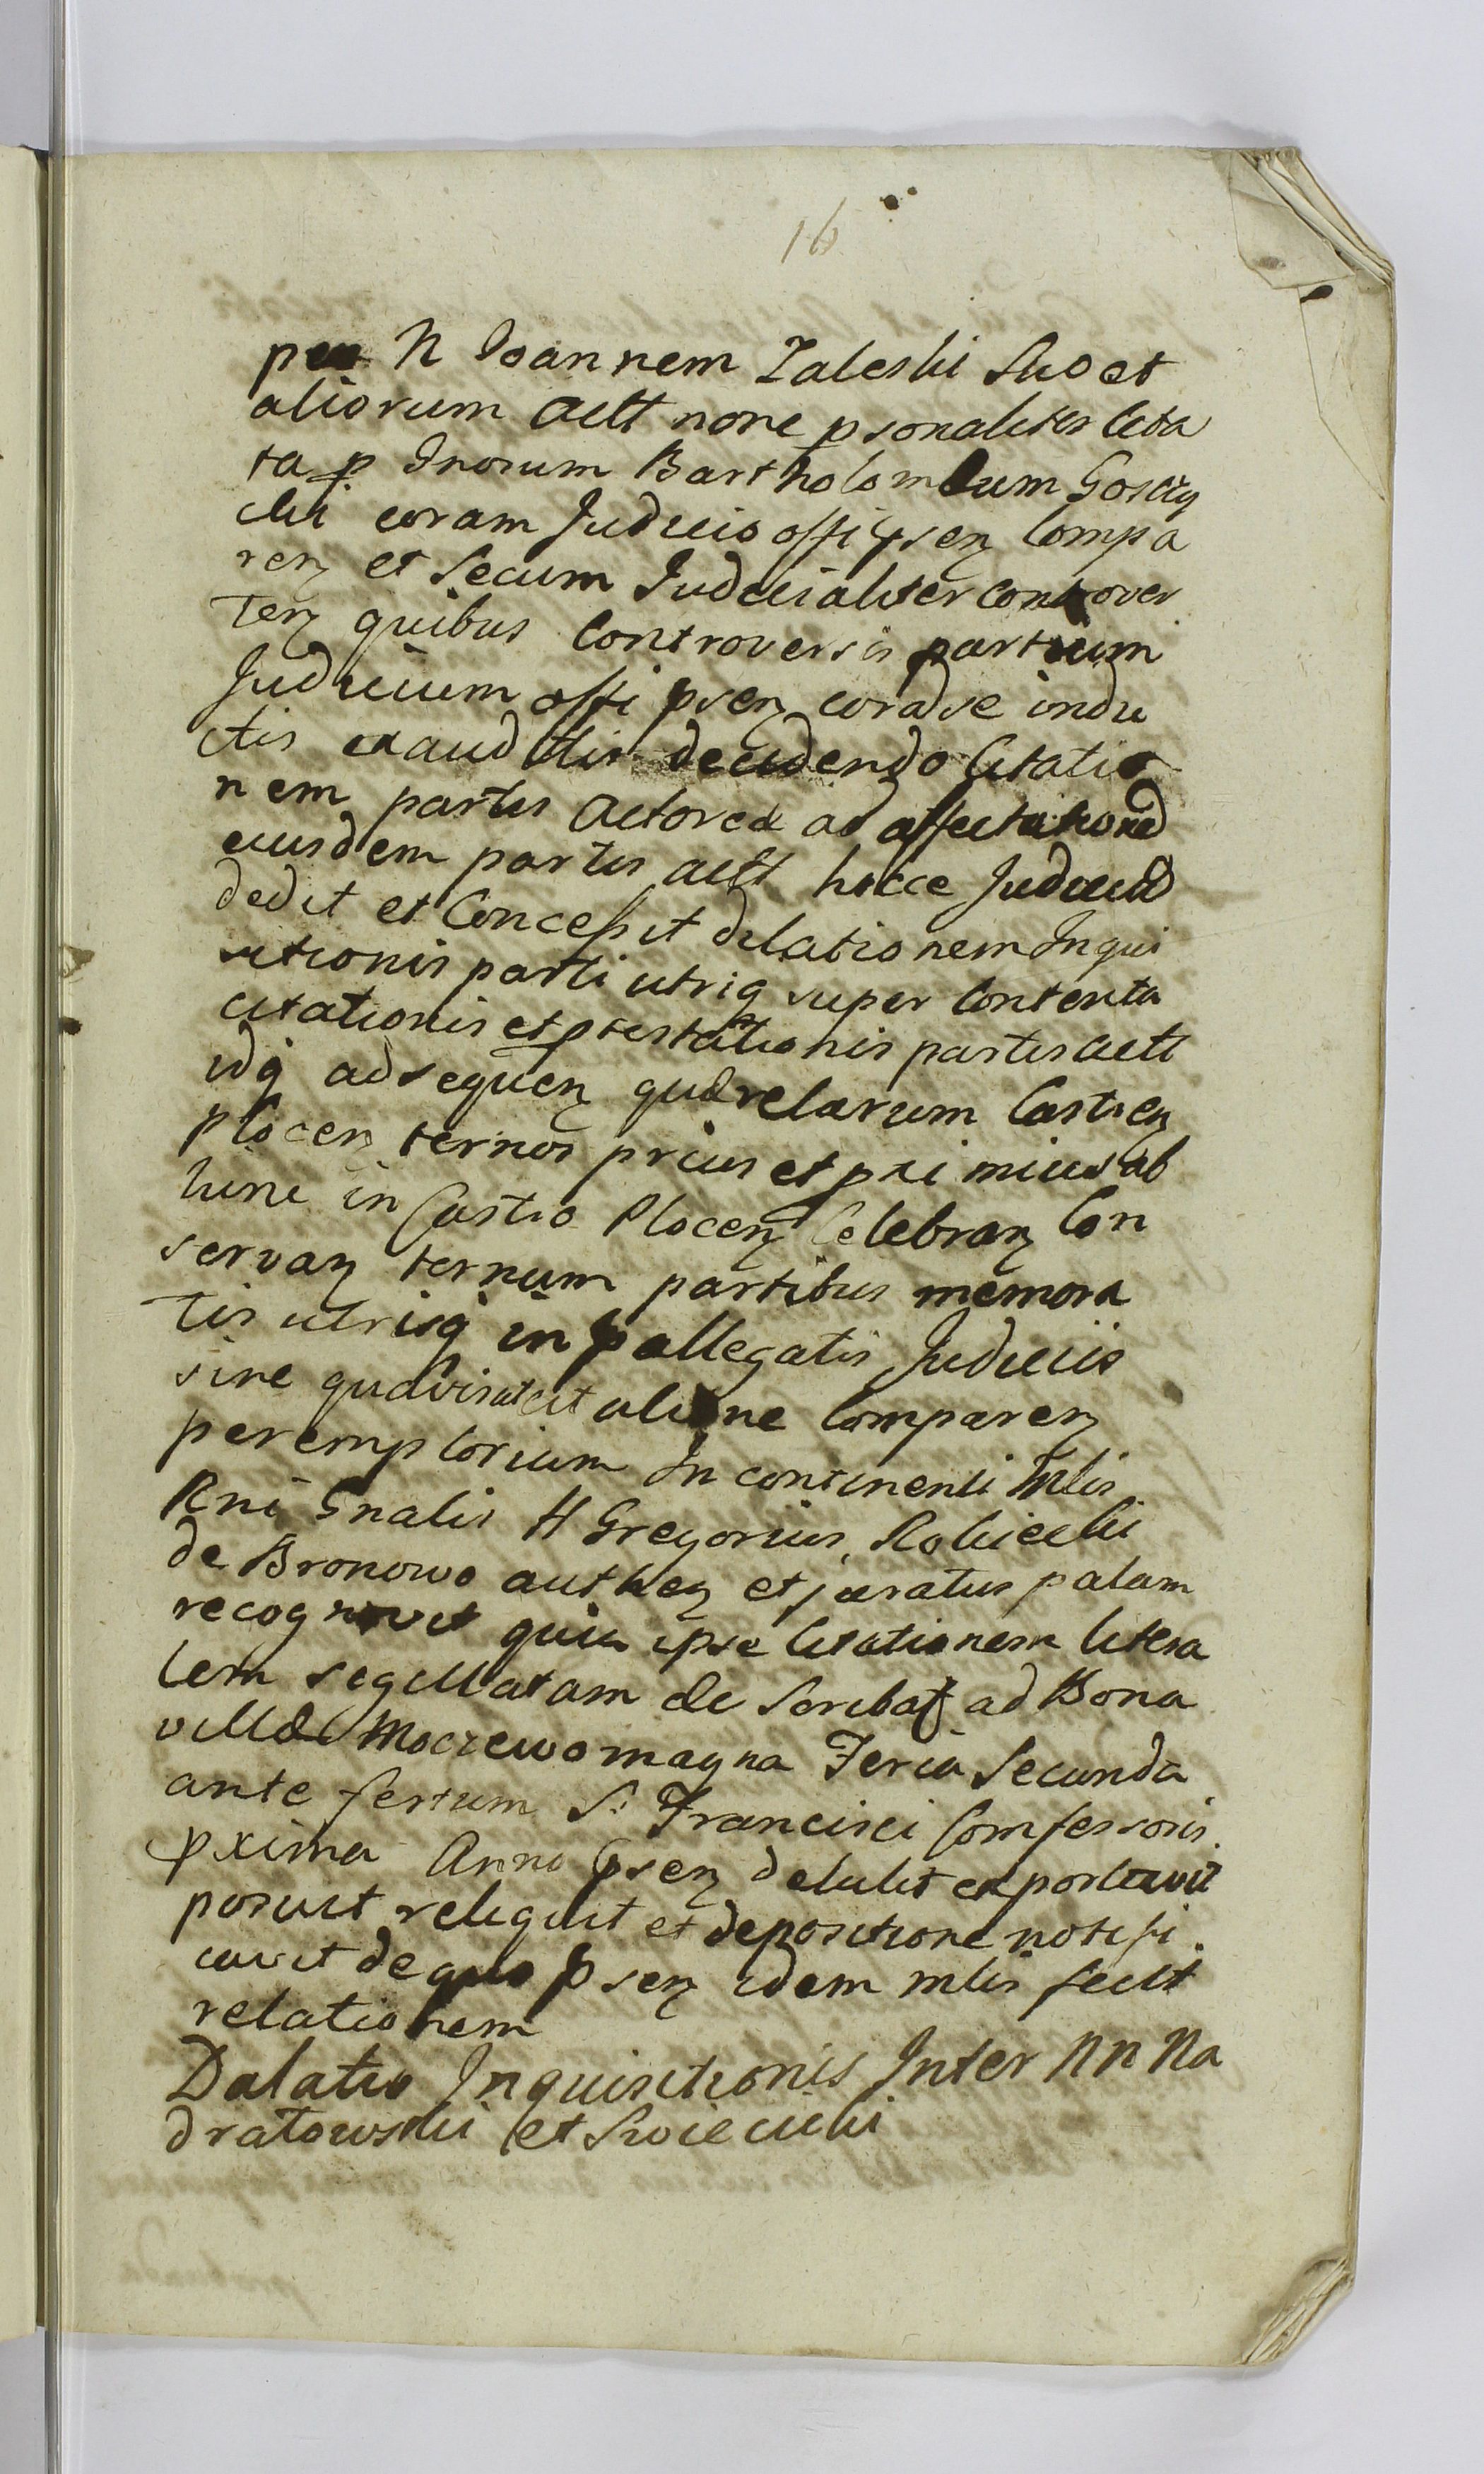 16
per N Joannem Zaleski Suo et
aliorum Actt none psonaliter Cita
ta p Gnosum Bartholomeum Gosciy
cki coram Judicio offi psenz Compa
renz et Secum Judicialiter controver
tenz quibus Controversis partium
Judicium offi psenz corad se indu
ctis exauditis decidendo Citatio
nem partis Actorea ad affectationed
eiusdem partis actt hocce Judiciu
dedit et Concessit dilationem Inqui
sitionis parti utriq super Contenta
citationis et ptestationis partis actt
idq ad sequenz quærelarum Castrenz
Plocenz ternos prius et primius ab
hinc in Castro Plocenz Celebranz Con
servanz ternum partibus memora
tis utrisq in pallegatis Judiciis
sine quavis citatione Comparenz
peremptorium In continenti Mlis
Rni Gnalis H Gregorius
de Bronowo authenz et juratus palam
recognovit quia ipse Citationem litera
lem sigillatam de Scribat ad Bona
villæ Moczewo magna Feria Secunda
ante festum S. Francisci Confessoris
pxima Anno psenz detulit exportavit
posuit reliquit et depositione notifi
cavit de quo psenz idem mlis fecit
relationem
Dalatio Inquisitionis Inter N n Na
dratowski et Swiecicki